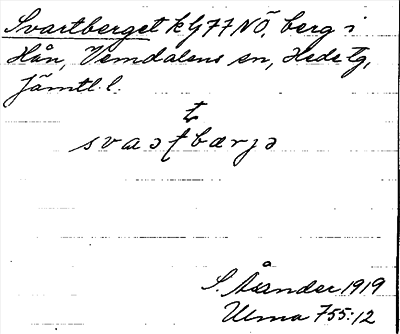 Svartberget k G 77 NÖ, berg i
Hån, Vemdalens sn, Hede tg,
Jämtl. l.
t
svaətbærjə
S. Åsander 1919
Ulma 755:12